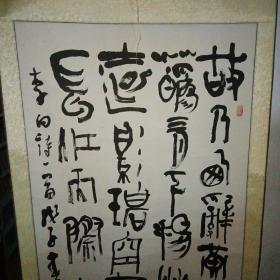 故人西辭黃
三月下揚州
遠影碧空
長江天際
李白詩一首戊子